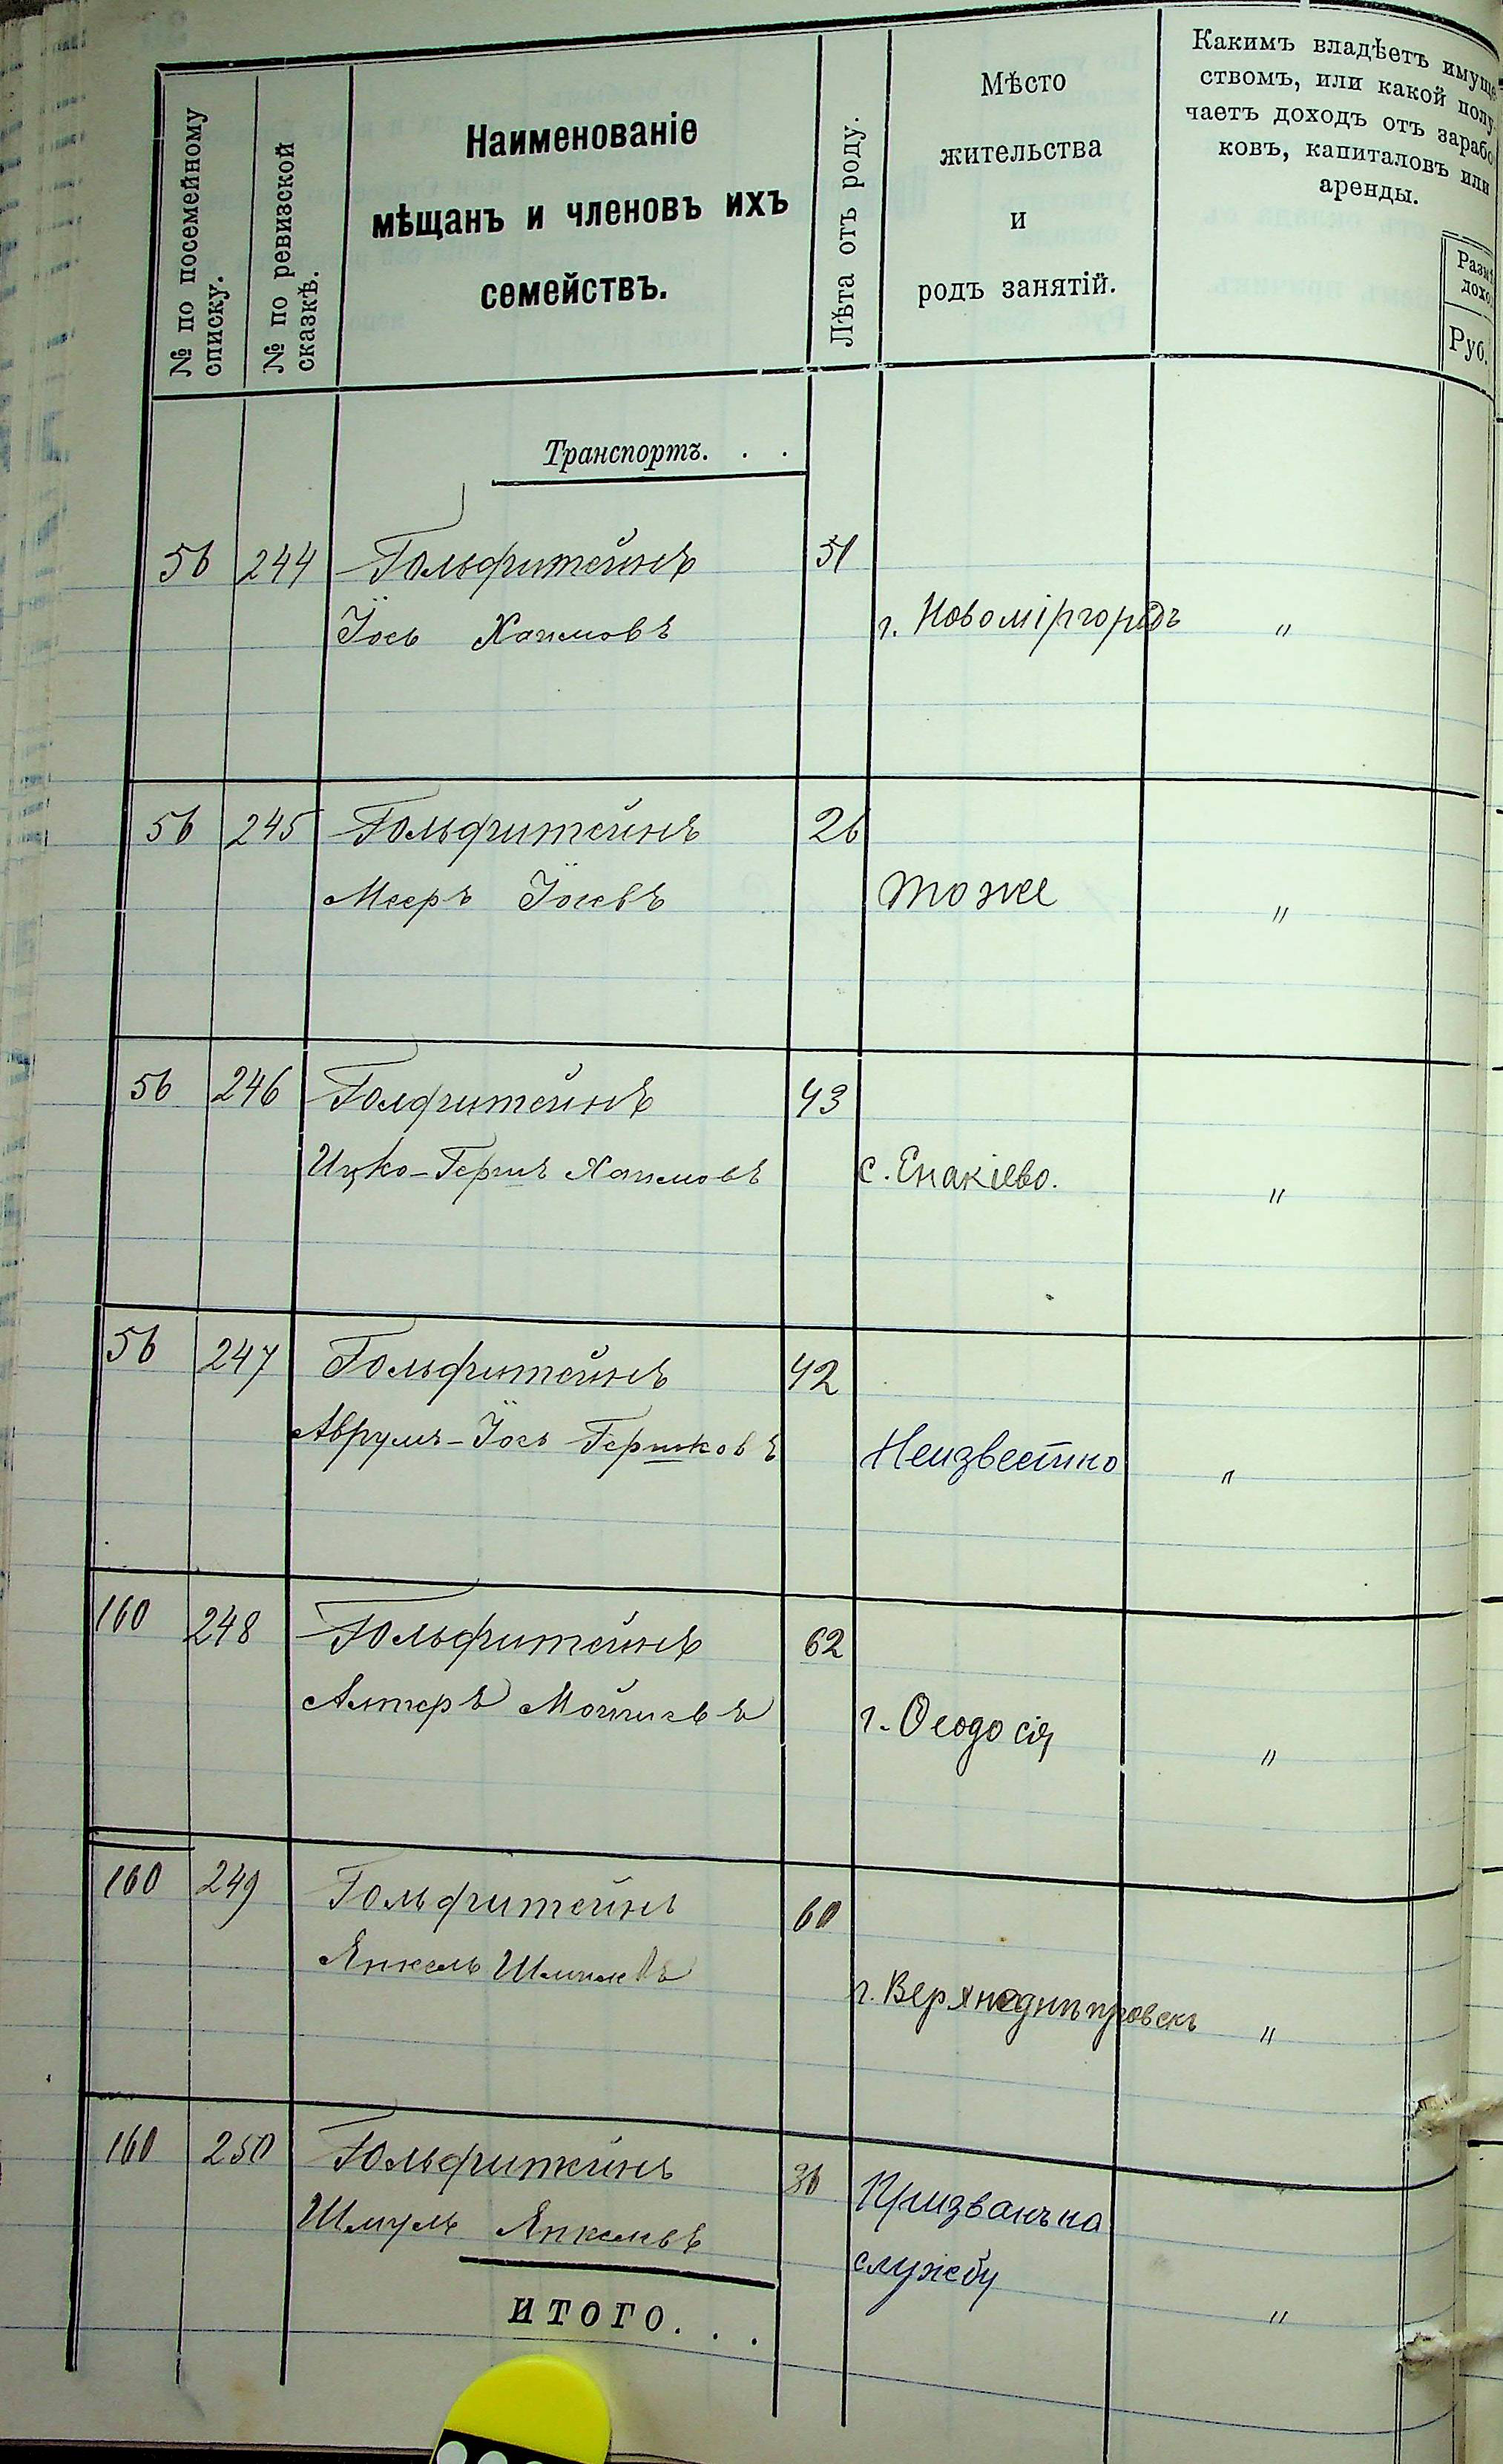 № по посемейному
списку.
№ по ревизской
сказкѣ.
Наименованіе
мѣщанъ и членовъ ихъ
семействъ.
Лѣта отъ роду.
Мѣсто
жительства
и
родъ занятій.
Какимъ владѣетъ имуще
ствомъ, или какой полу
чаетъ доходъ отъ зарабо
ковъ, капиталовъ или
аренды.
Руб.
Транспортъ. . .
56 244 Гольфштейнъ 51
Іось Хаимовъ г. Новоміргородъ "
56 245 Гольфштейнъ 26
Мееръ Іосевъ тоже "
56 246 Голфштейнъ 43
Ицко-Гершъ Хаимовъ с. Енакіево. "
56 247 Гольфштейнъ 42
Аврумъ-Іось Гершковъ Неизвестно "
160 248 Гольфштейнъ 62
Алтеръ Мошковъ г. Ѳеодосія "
160 249 Гольфштейнъ 60
Янкель Шмилевъ г. Верхнеднѣпровскъ "
160 250 Гольфштейнъ 36 Призванъ на
Шмуль Янкелевъ службу "
ИТОГО. . .